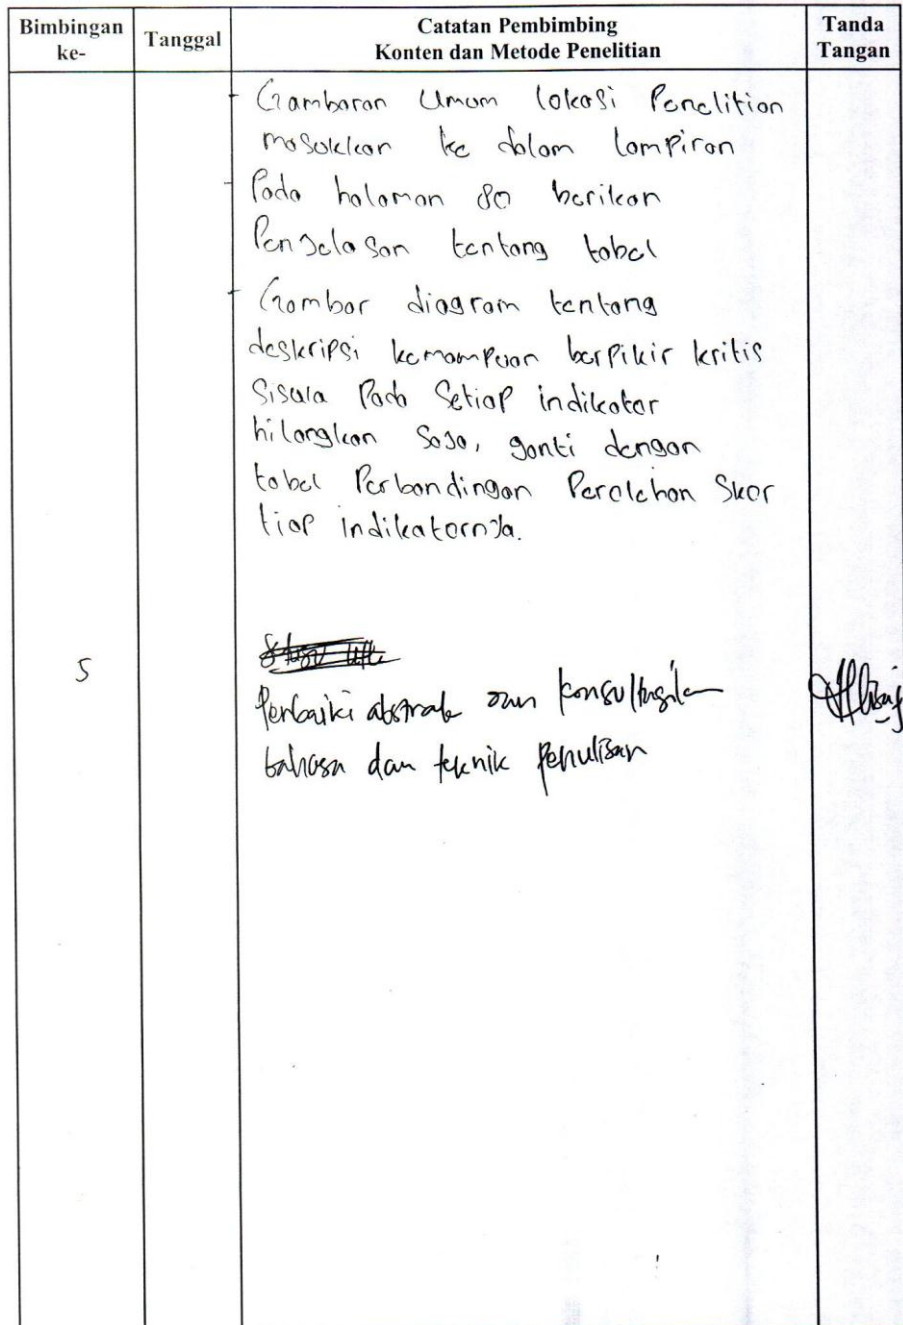 Bimbingan ke-
Tanggal
Catatan Pembimbing
Konten dan Metode Penelitian
Tanda Tangan
- Gambaran Umum lokasi Penelitian
masukkan ke dalam lampiran
- Pada halaman 80 berikan
Penjelasan tentang tabel
- Gambar diagram tentang
deskripsi kemampuan berpikir kritis
Siswa Pada Setiap indikator
hilangkan Saja, ganti dengan
tabel Perbandingan Perolehan Skor
tiap indikatornya.
5
Perbaiki abstrak dan konsultasikan
bahasa dan teknik penulisan